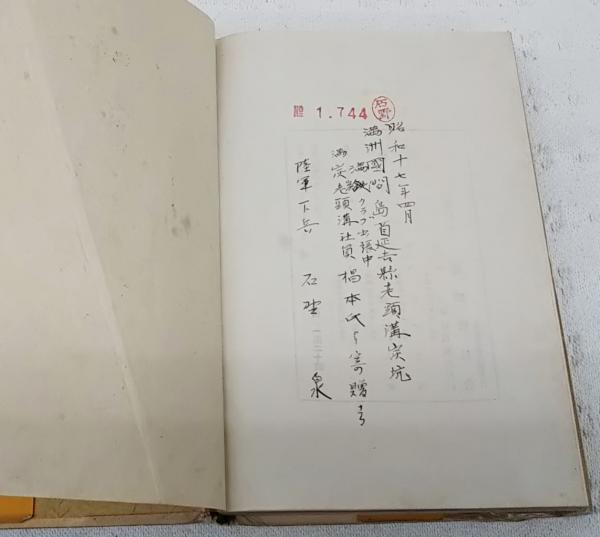 1.744
石野
昭和十七年四月
満洲國間島省延吉縣老頭溝炭坑
満鉄クラブ出張中
満炭老頭溝社員 椙本氏ヨリ寄贈
陸軍 下兵 石野 泉